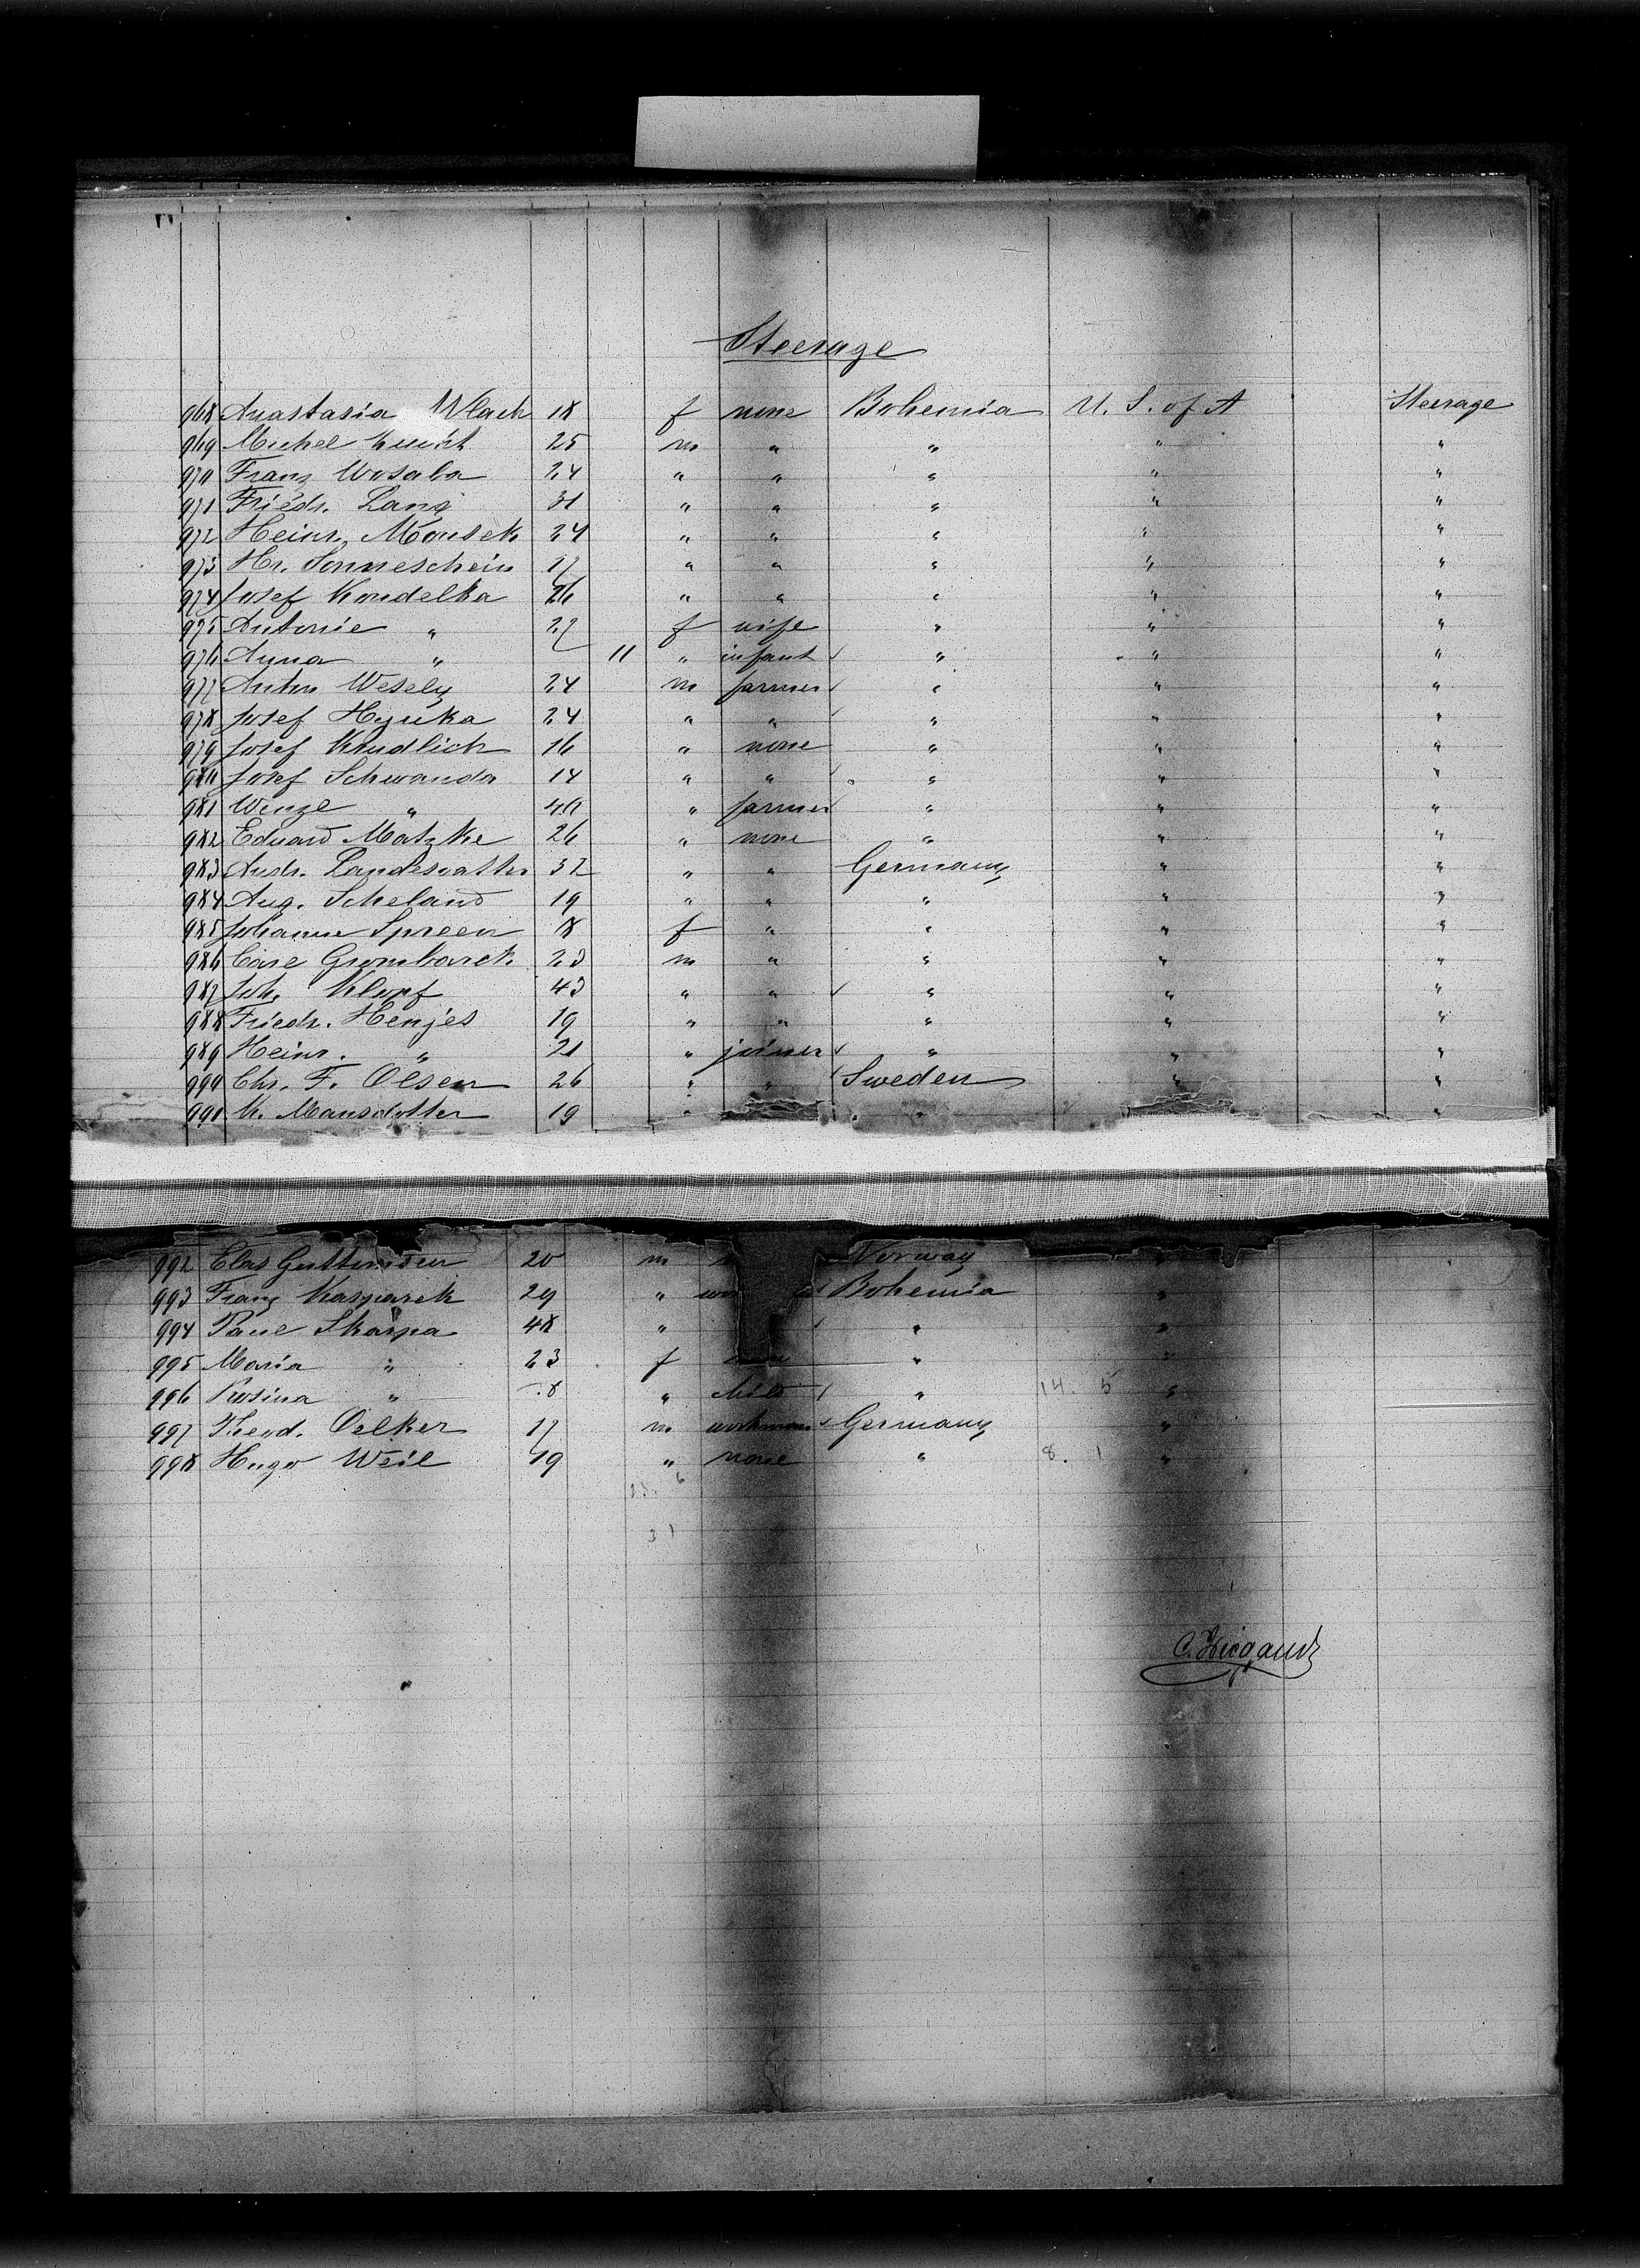 Steerage
968 Anastasia Wlach 18 f none Bohemia U. S. of A Steerage
969 Michel 25 m " " " "
970 Franz Wosaba 24 " " " " "
971 Friedr. Lang 31 " " " " "
972 Heinr. 24 " " " " "
973 Hr. Sonneschein 17 " " " " "
974 Josef Koudelka 26 " " " " "
975 Antonie " 27 f wife " " "
976 Anna " 11 " infant " " "
977 Anton Wesely 24 m farmer " " "
978 Josef 24 " " " " "
979 Josef Kudlich 16 " none " " "
980 Josef Schwanda 14 " " " " "
981 Wenzl " 40 " farmer " " "
982 Eduard Matzke 26 " none " " "
983 Andr. Landesvatter 32 " " Germany " "
984 Aug. Scheland 19 " " " " "
985 Johanne Spreen 18 f " " " "
986 Carl Grombarck 23 m " " " "
987 Joh. Klopf 43 " " " " "
988 Friedr. Henjes 19 " " " " "
989 Heinr. " 21 " joiner " " "
990 Chr. F. Olsen 26 " " Sweden " "
991 K. Mansdotter 19 " " "
992 Elas 20 m Norway "
993 Franz Kasparek 29 " Bohemia "
994 Paul Skarpa 48 " " "
995 Maria " 23 f " "
996 Rosina " 8 " child " 14. 5 "
997 Theod. Oelker 17 m workman Germany "
998 Hugo Weil 19 " none " 8. 1 "
6
31
C. Wiegand